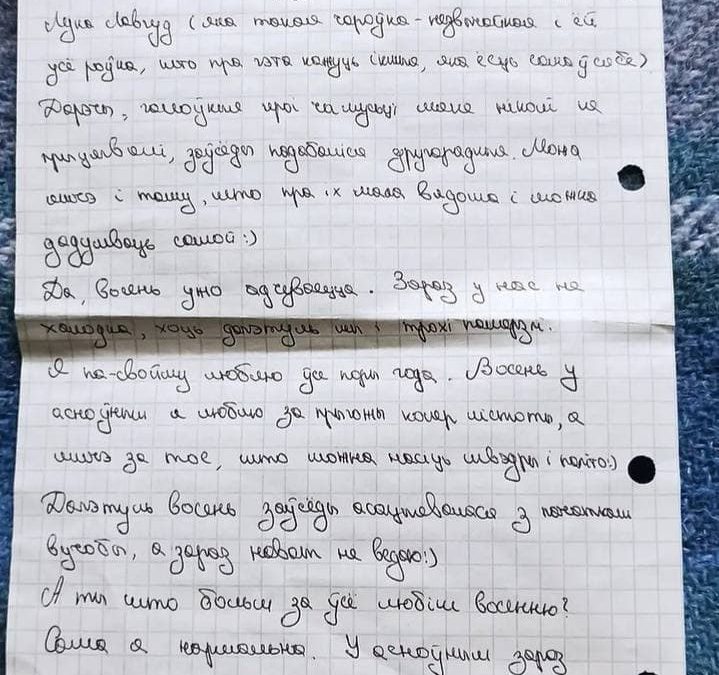 Луна Лавгуд (яна такая чароўна-незвычайная і ёй
усё роўна, што пра гэта кажуць іншыя, яна ёсць сама ў сабе)
Дарэчы, галоўныя героі чамусьці мяне ніколі не
прыцягвалі, заўсёды падабаліся другарадныя. Можа
яшчэ і таму, што пра іх мала вядома і можна
дадумваць самой:)
Да, восень ужо адчуваецца. Зараз у нас не
холадна, хоць дагэтуль мы і трохі памерзлі.
Я па-свойму люблю ўсе поры года. Восень у
асноўным я люблю за прыгожы колер лістоты, а
яшчэ за тое, што можна насіць швэдры і паліто:)
Дагэтуль восень заўсёды асацыявалася з пачаткам
вучобы, а зараз нават не ведаю:)
А ты што больш за ўсё любіш восенню?
Сама я нармальна. У асноўным зараз